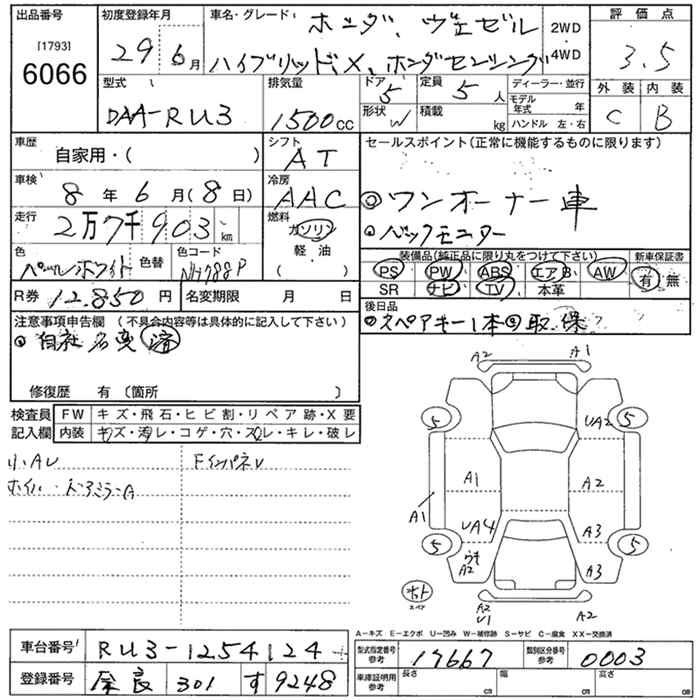 出品番号 初度登録年月 車名・グレード ホンダ、ヴェゼル 2WD 評価点
[1793] 6066 29年6月 ハイブリッド、X、ホンダセンシング 4WD 3.5
型式 排気量 ドア 定員 ディーラー・並行 外装 内装
DAA-RU3 1500cc 5 5人 モデル年式 年 C B
形状 W 積載 kg ハンドル 左・右
車歴 自家用・( ) シフト AT セールスポイント(正常に機能するものに限ります)
車検 8年6月(8日) 冷房 AAC ◎ワンオーナー車
走行 2万7千903km 燃料 ガソリン ◎バックモニター
軽・油
( )
色 パールホワイト 色替 色コード NH788P
装備品(純正品に限り丸をつけて下さい) 新車保証書
PS PW ABS エアB AW 有 無
SR ナビ TV 本革
R券 12,850円 名変期限 月 日
後日品
スペアキー1本 取、保
注意事項申告欄 (不具合内容等は具体的に記入して下さい)
◎自社名変済
修復歴 有(箇所 )
検査員記入欄 FW キズ・飛石・ヒビ割・リペア跡・X要
内装 キズ・汚レ・コゲ・穴・スレ・キレ・破レ
小、AU FインパネV
A2 A1
5 UA2 5
A1 A2
A1
UA4 A3
5 ウキ A2 A3 5
スペア
A2 U1 A2
A-キズ E-エクボ U-凹み W-補修跡 S-サビ C-腐食 XX-交換済
車台番号 RU3-1254124 型式指定番号 参考 17667 類別区分番号 参考 0003
登録番号 奈良 301 す 9248 車庫証明用 参考 長さ cm 幅 cm 高さ cm